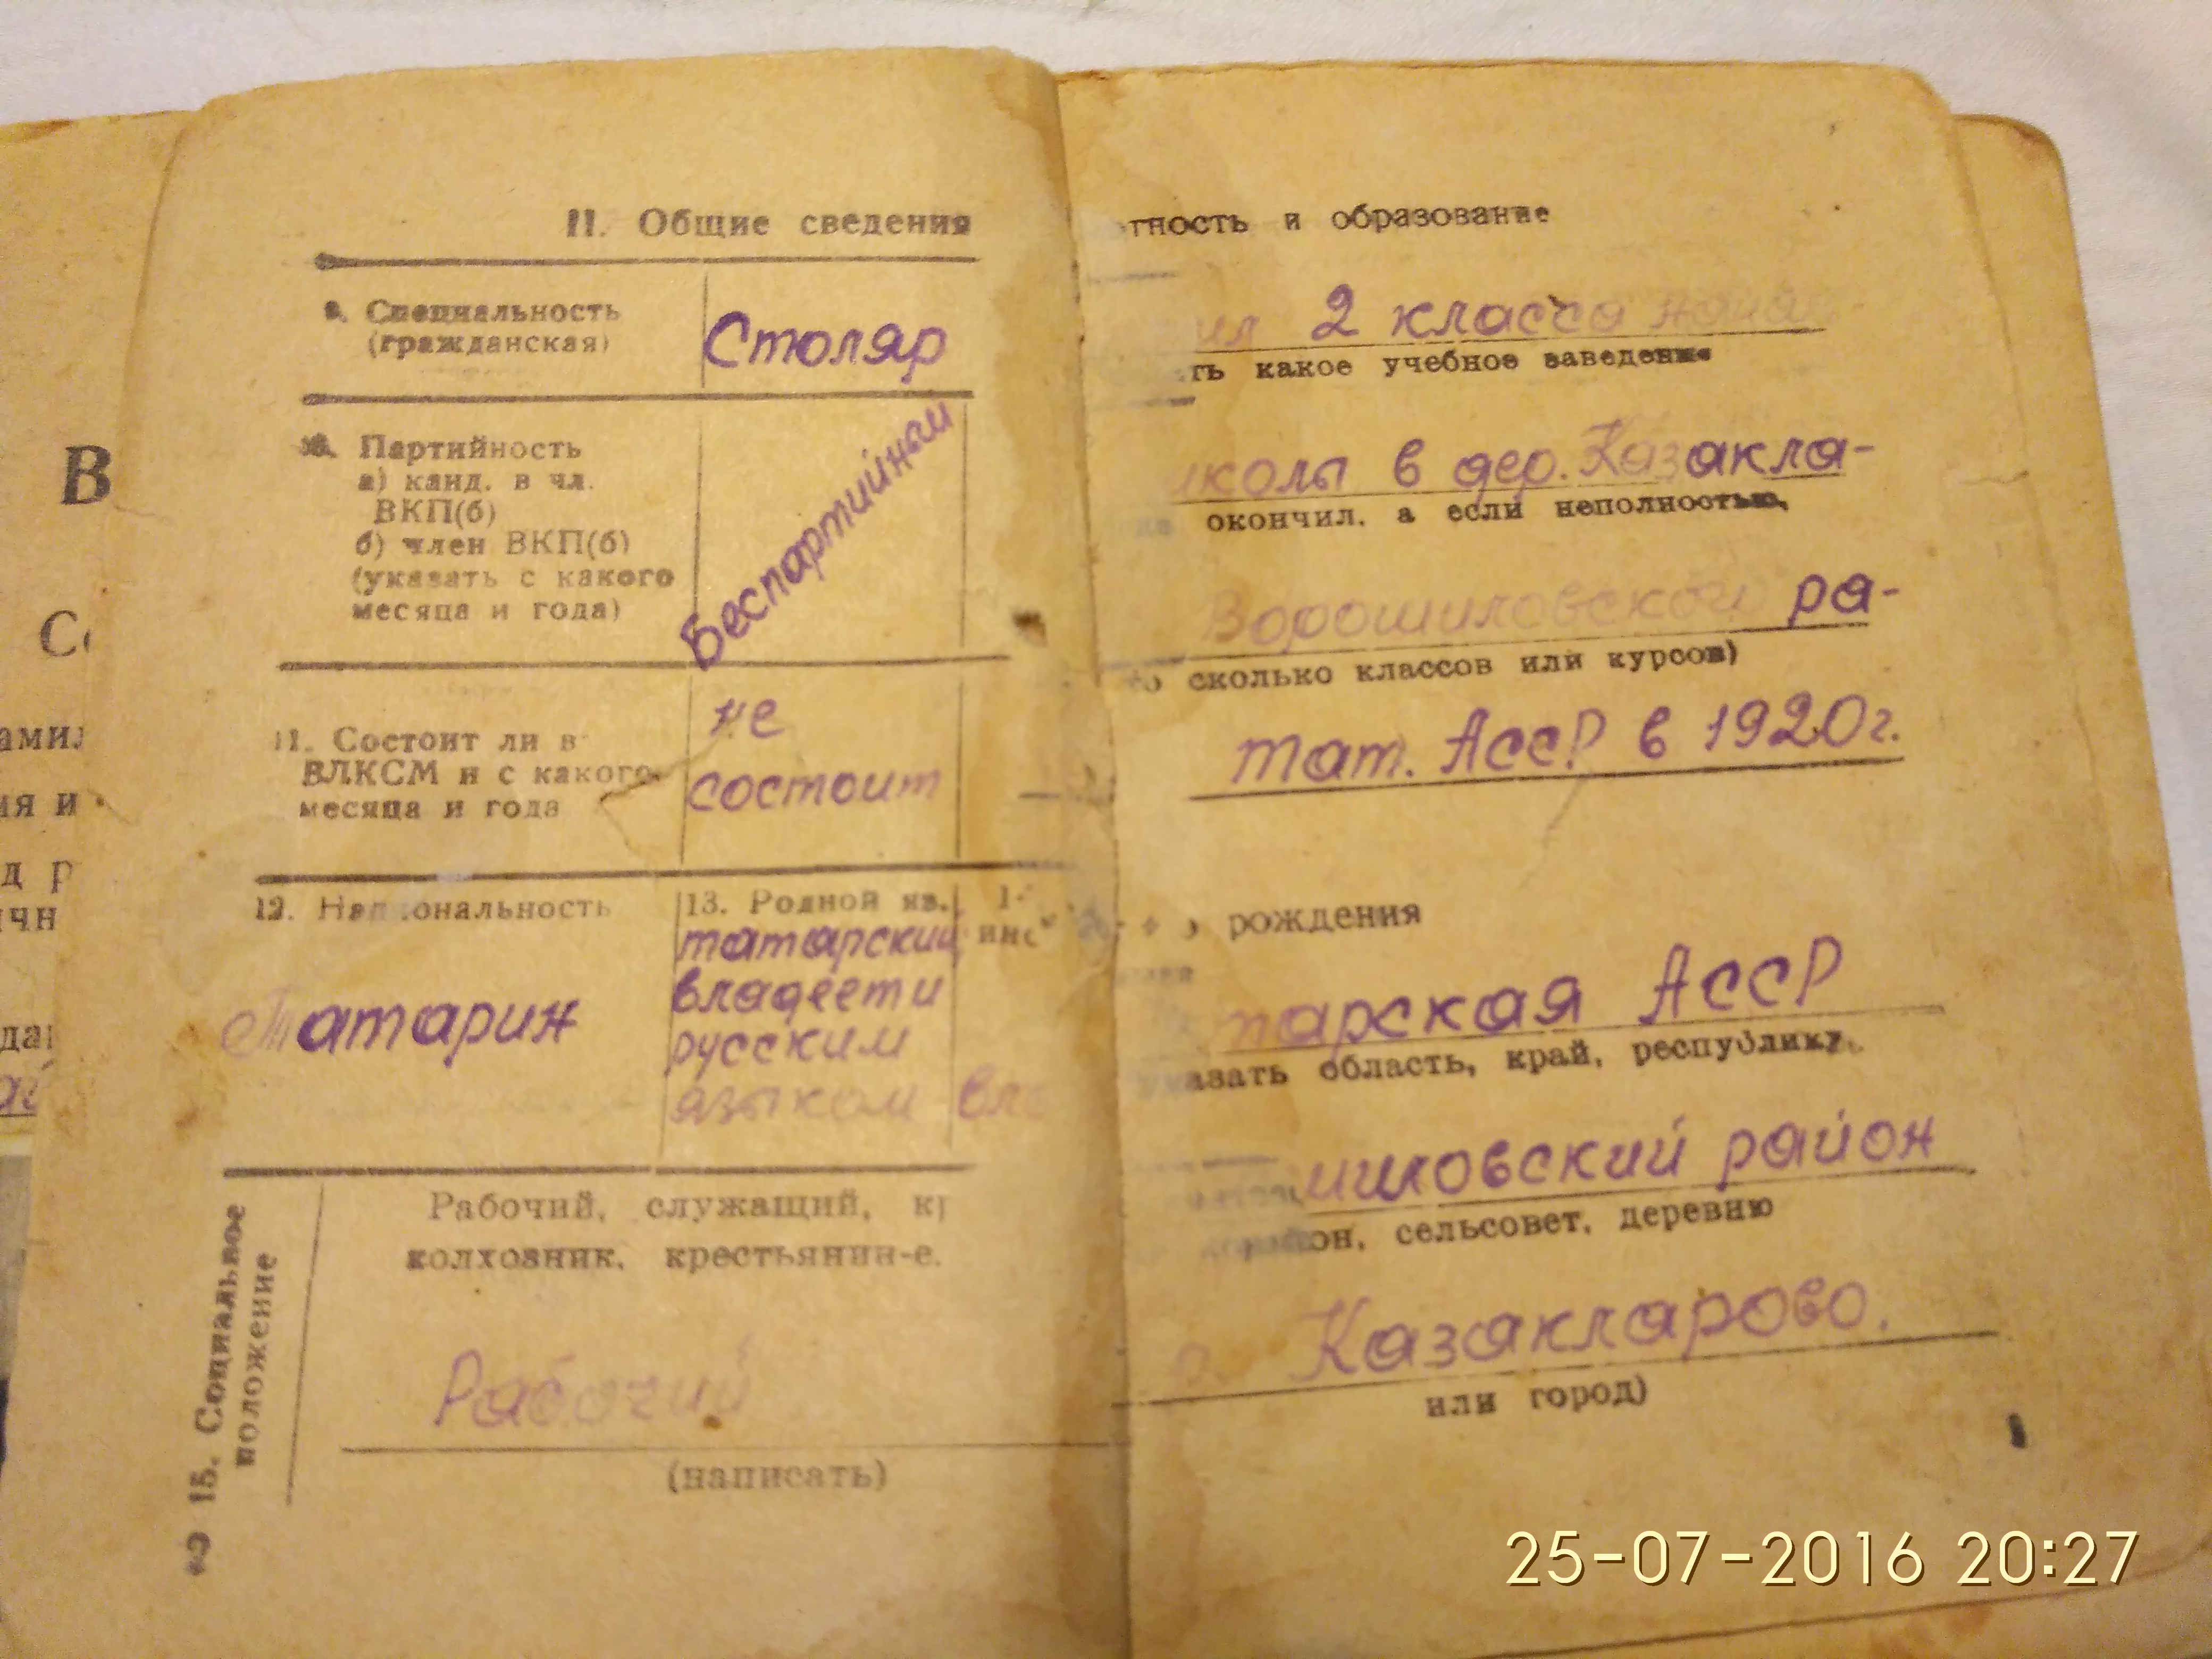 II. Общие сведения
9. Специальность
(гражданская)
Столяр
10. Партийность
а) канд. в чл.
ВКП(б)
б) член ВКП(б)
(указать с какого
месяца и года)
Беспартийный
11. Состоит ли в
ВЛКСМ и с какого
месяца и года
не
состоит
12. Национальность
Татарин
13. Родной яз.
татарский
владеет и
русским
языком
15. Социальное
положение
Рабочий, служащий, к
колхозник, крестьянин-е.
Рабочий
(написать)
и образование
2 класса
какое учебное заведение
в дер. Казакла-
окончил, а если неполностью,
Ворошиловского ра-
сколько классов или курсов)
Тат. АССР в 1920г.
рождения
тарская АССР
область, край, республику,
шиловский район
сельсовет, деревню
Казакларово.
или город)
25-07-2016 20:27